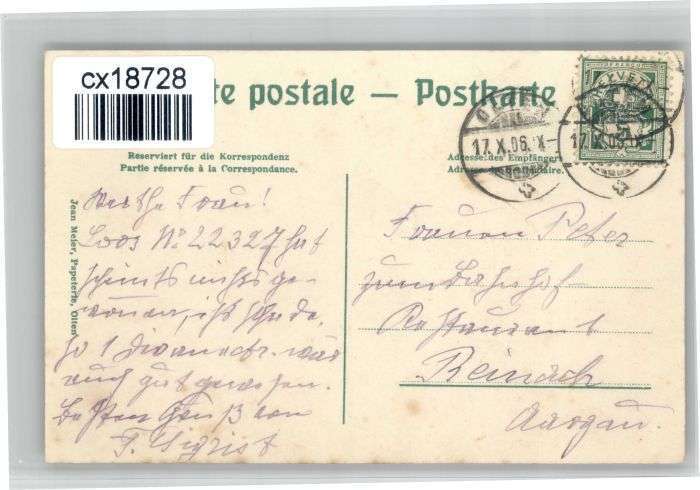 cx18728
te postale — Postkarte
Reserviert für die Korrespondenz
Partie réservée à la Correspondance.
Adresse des Empfängers
Jean Meier, Papeterie, Olten
17.X.06.
17.X.06.
FRANCO
Werthe Frau!
Loos No 22327 hat
scheints nichts ge-
wonnen, ist schade,
so 1 wär
auch gut gewesen.
Besten Gruß von
F. Sigrist
Frauen Peter
zum Bahnhof
Restaurant
Reinach
Aargau.